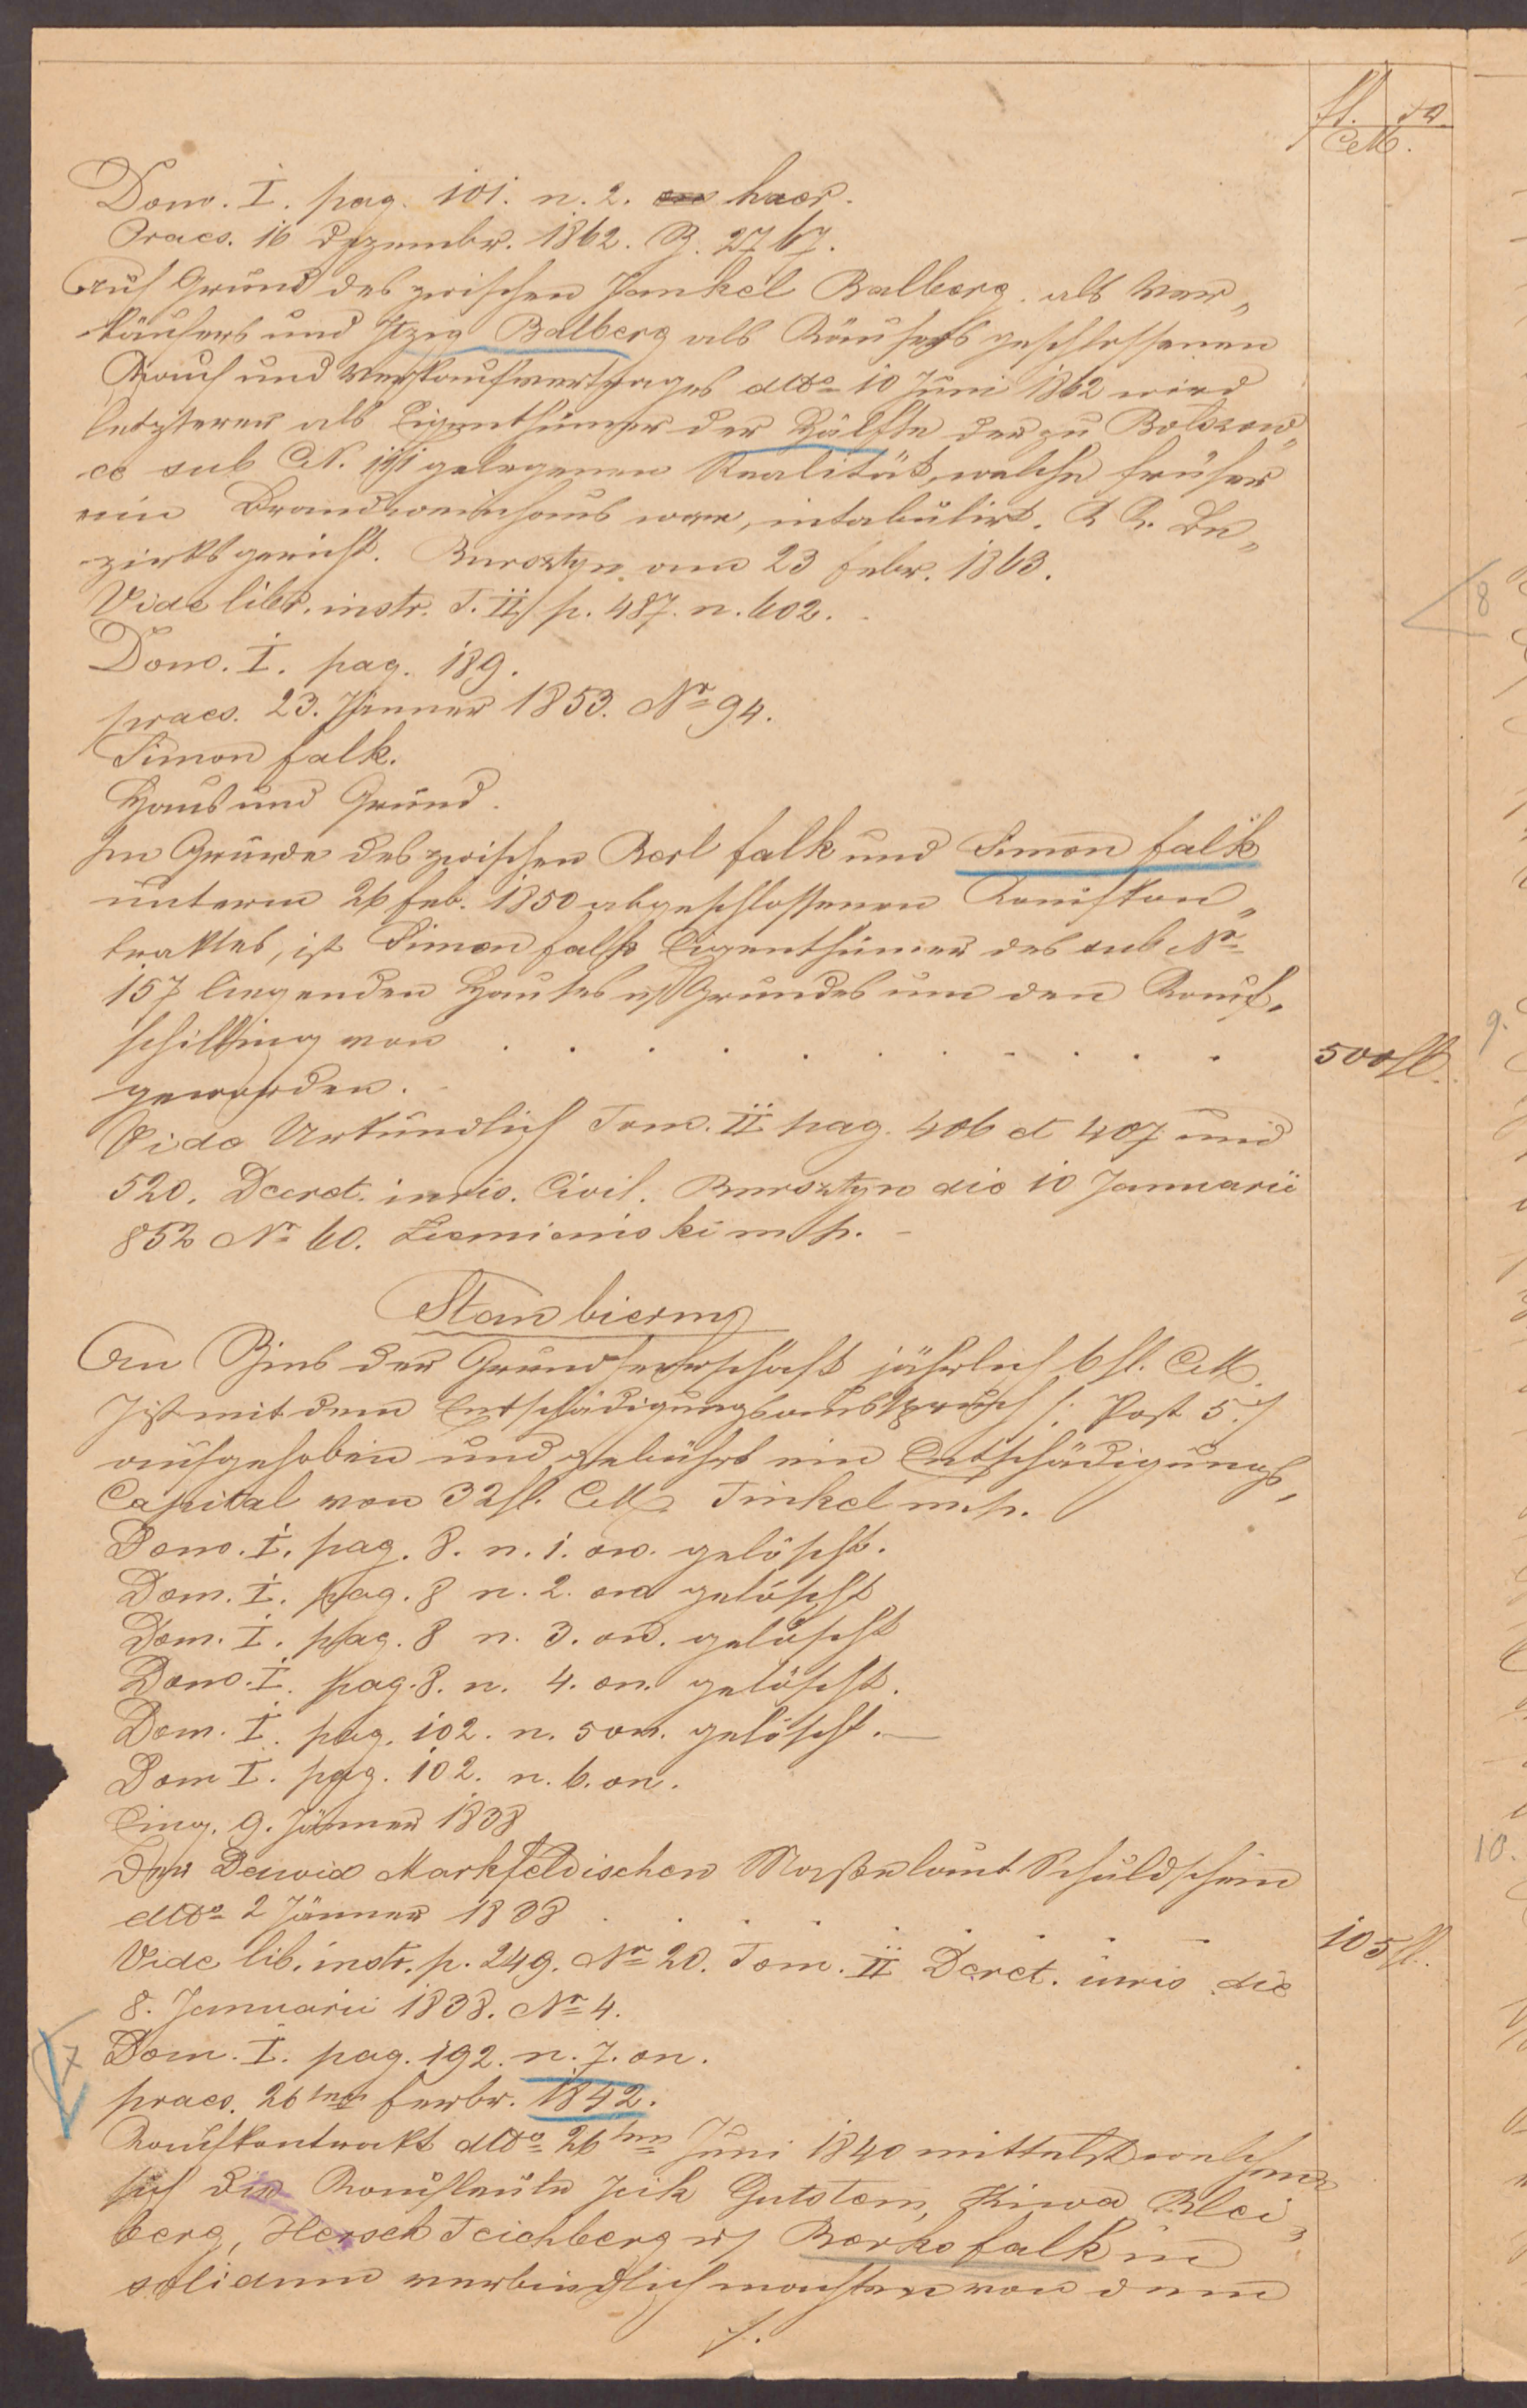 fl. xr
CM.
Dom. I. pag. 101. n. 2. haer.
Praes. 16 Dezembr. 1862. Z. 2767.
Auf Grund des zwischen Jankel Balberg als Ver„
käufers und Itzig Balberg als Käufers geschlossenen
Kauf und Verkaufvertrages ddto 10 Juni 1862 wird
letzterer als Eigenthümer der Hälfte der zu Bolszow„
ce sub CN. gelegenen Realität, welche früher
ein Brandweinhaus war, intabulirt. K. K. Be„
zirksgericht. Bursztyn am 23 Febr. 1863.
Vide libr. instr. T. II p. 487. n. 602.
Dom. I. pag. 189.
praes. 23. Jänner 1853. Nr 94.
Simon Falk.
Haus und Grund.
Im Grunde des zwischen Berl Falk und Simon Falk
unterm 26 Feb. 1850 abgeschlossenen Kaufkon„
traktes, ist Simon Falk Eigenthümer des sub Nr
157 liegenden Hauses u Grundes um den Kauf„
schilling von . . . . . . . . . . 500 fl.
geworden.
Vide Urkundlich Tom. II pag. 406 et 407 und
520. Decret. iuris. Civil. Bursztyn die 10 Januarii
852 Nr 60. m/p.
Stan bierny
An Zins der Grundherrschaft jährlich 6 fl. CM.
Ist mit dem Entschädigungsausspruch /: Post 5 :/
aufgehoben und gebührt ein Entschädigungs„
Capital von 32 fl. CM. Tinkel m.p.
Dom. I. pag. 8. n. 1. on. gelöscht.
Dom. I. pag. 8 n. 2. on gelöscht
Dom. I. pag. 8 n. 3. on. gelöscht
Dom. I. pag. 8. n. 4. on. gelöscht.
Dom. I. pag. 102. n. 5 on. gelöscht.
Dom I. pag. 102. n. 6. on.
Eing. 9. Jänner 1838
Der Dawid Markfeldischen Masse laut Schuldschein
ddto 2 Jänner 1838 . . . . . . . . 105 fl.
Vide lib. instr. p. 249. Nr 20. Tom. II Decret. iuris die
8. Januarii 1838. Nr 4.
7 Dom. I. pag. 192. n. 7. on.
praes. 26ten Feber. 1842.
Kaufkontrakt ddto 26ten Juni 1840 mittelst welchen
sich die Kaufleute Gutstem, Kiwa Blei„
berg, Hersch Teichberg u Berko Falk in
solidum verbindlich machten von dem
./.
8
9.
10.